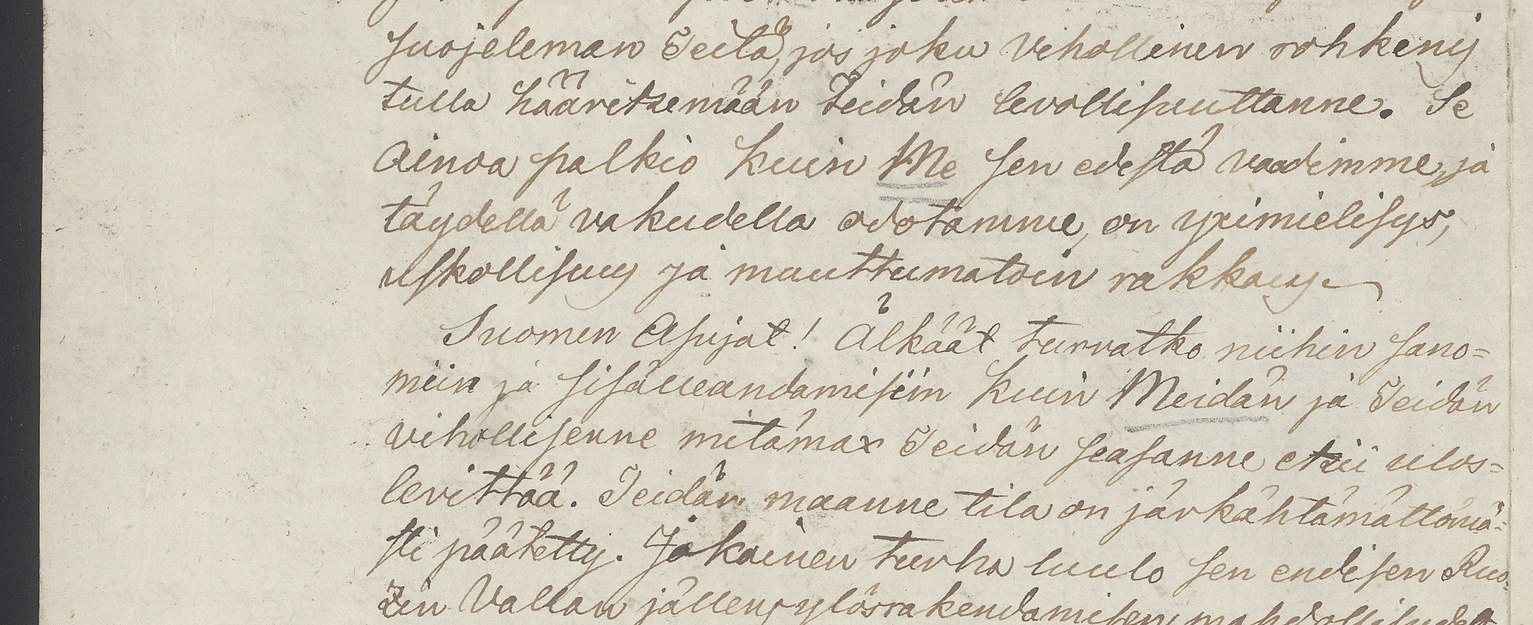 suojeleman Teitä, jos joku Vihollinen rohkenis
tulla hääritsemään Teidän levollisuuttanne. Se
Ainoa palkio kuin Me sen edestä vaadimme, ja
täydellä vakudella odotamme, on yximielisys,
uskollisuus ja muuttumatoin rakkaus.
Suomen Asujat! Älkäät turvatko niihin sano=
miin ja sisälleandamisiin kuin Meidän ja Teidän
vihollisenne mitämax Teidän seasanne etzii ulos=
levittää. Teidän maanne tila on järkähtämättömä=
sti päätetty. Jokainen turha luulo sen endisen Ruo=
zin Vallan jällens ylösrakendamisen mahdollisudest